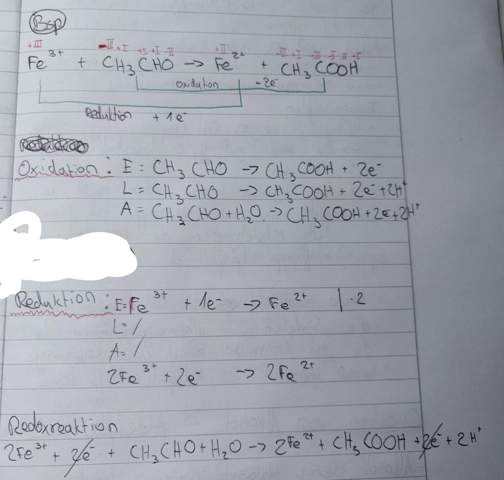 Bsp
+III -III +I +I +I -II +II -III +I +III -II -II +I
Fe³⁺ + CH₃CHO → Fe²⁺ + CH₃COOH
oxidation -2e⁻
Reduktion + 1e⁻
Oxidation: E = CH₃CHO → CH₃COOH + 2e⁻
L = CH₃CHO → CH₃COOH + 2e⁻ + 2H⁺
A = CH₃CHO + H₂O → CH₃COOH + 2e⁻ + 2H⁺
Reduktion: E = Fe³⁺ + 1e⁻ → Fe²⁺ | · 2
L = /
A = /
2Fe³⁺ + 2e⁻ → 2Fe²⁺
Redoxreaktion
2Fe³⁺ + 2e⁻ + CH₃CHO + H₂O → 2Fe²⁺ + CH₃COOH + 2e⁻ + 2H⁺